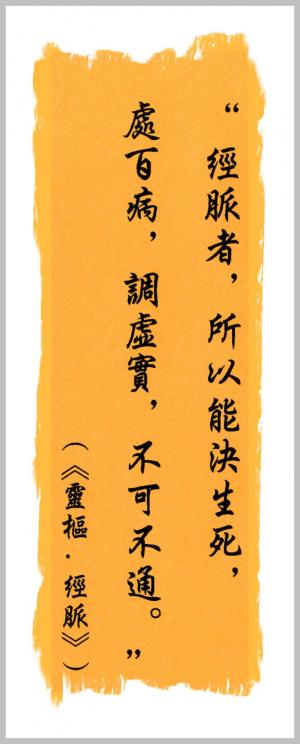 “經脈者，所以能決生死，
處百病，調虛實，不可不通。”
（《靈樞·經脈》）